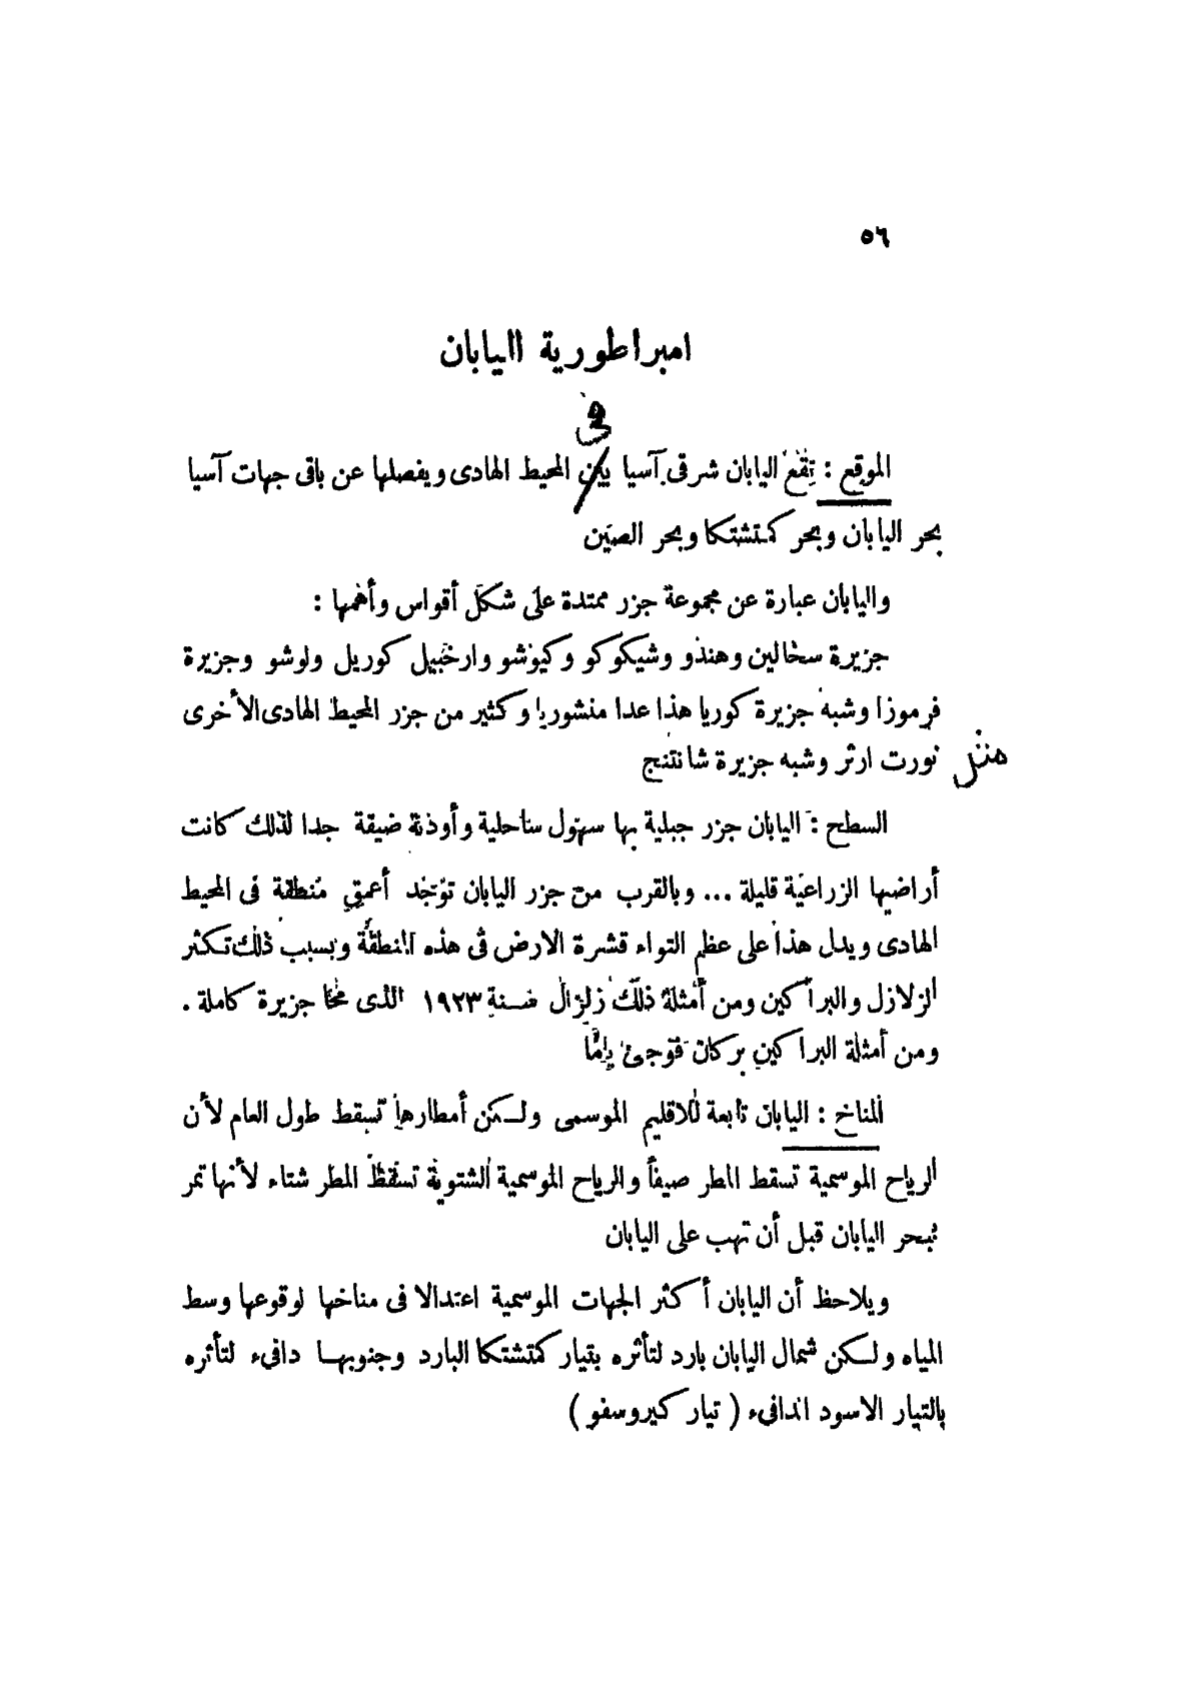 ٥٦
امبراطورية اليابان
فى
الموقع : تقع اليابان شرقى آسيا بين المحيط الهادى ويفصلها عن باقى جهات آسيا
بحر اليابان وبحر كمتشتكا وبحر الصين
واليابان عبارة عن مجموعة جزر ممتدة على شكل أقواس وأهمها :
جزيرة سخالين وهندو وشيكوكو وكيوشو وارخبيل كوريل ولوشو وجزيرة
فرموزا وشبه جزيرة كوريا هذا عدا منشوريا وكثير من جزر المحيط الهادى الأخرى
مثل نورت ارثر وشبه جزيرة شانتنج
السطح : اليابان جزر جبلية بها سهول ساحلية وأودية ضيقة جدا لذلك كانت
أراضيها الزراعية قليلة ... وبالقرب من جزر اليابان توجد أعمق منطقة فى المحيط
الهادى ويدل هذا على عظم التواء قشرة الارض فى هذه المنطقة وبسبب ذلك تكثر
الزلازل والبراكين ومن أمثلة ذلك زلزال سنة ١٩٢٣ الذى محا جزيرة كاملة .
ومن أمثلة البراكين بركان فوجى ياما
المناخ : اليابان تابعة للاقليم الموسمى ولكن أمطارها تسقط طول العام لأن
الرياح الموسمية تسقط المطر صيفاً والرياح الموسمية الشتوية تسقط المطر شتاء لأنها تمر
ببحر اليابان قبل أن تهب على اليابان
ويلاحظ أن اليابان أكثر الجهات الموسمية اعتدالا فى مناخها لوقوعها وسط
المياه ولكن شمال اليابان بارد لتأثره بتيار كمتشتكا البارد وجنوبها دافىء لتأثره
بالتيار الاسود الدافىء ( تيار كيروسفو )